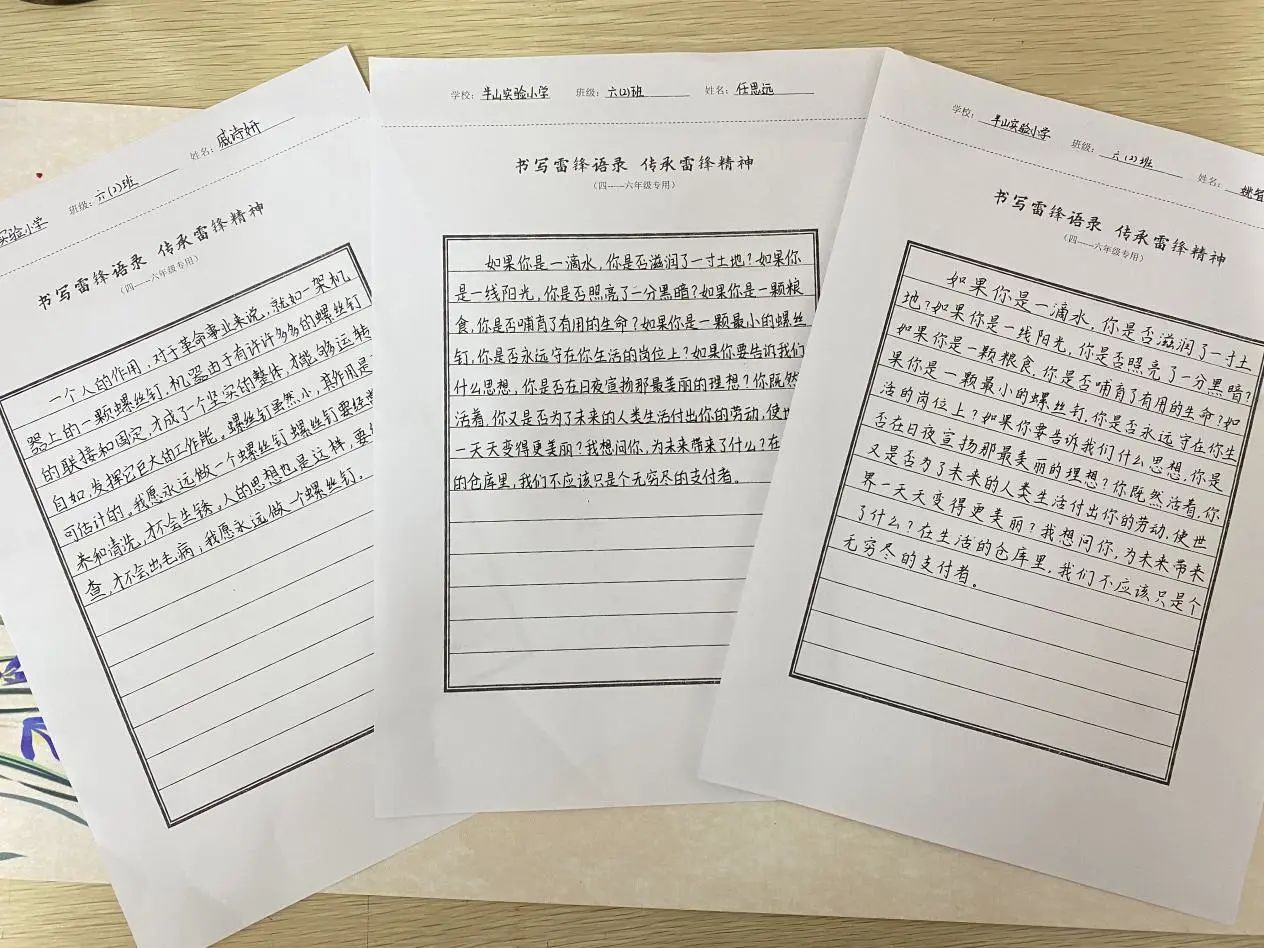 实验小学 班级：六(2)班 姓名：戚诗妍
书写雷锋语录 传承雷锋精神
（四——六年级专用）
一个人的作用，对于革命事业来说，就如一架机
器上的一颗螺丝钉，机器由于有许许多多的螺丝钉
的联接和固定，才成了一个坚实的整体，才能够运转
自如，发挥它巨大的工作能。螺丝钉虽然小，其作用是
可估计的。我愿永远做一个螺丝钉。螺丝钉要经常
养和清洗，才不会生锈。人的思想也是这样，要
查，才不会出毛病，我愿永远做一个螺丝钉。
学校：半山实验小学 班级：六(2)班 姓名：任思远
书写雷锋语录 传承雷锋精神
（四——六年级专用）
如果你是一滴水，你是否滋润了一寸土地？如果你
是一线阳光，你是否照亮了一分黑暗？如果你是一颗粮
食，你是否哺育了有用的生命？如果你是一颗最小的螺丝
钉，你是否永远守在你生活的岗位上？如果你要告诉我们
什么思想，你是否在日夜宣扬那最美丽的理想？你既然
活着，你又是否为了未来的人类生活付出你的劳动，使世
一天天变得更美丽？我想问你，为未来带来了什么？在
的仓库里，我们不应该只是个无穷尽的支付者。
学校：半山实验小学 班级：六(2)班 姓名：姚
书写雷锋语录 传承雷锋精神
（四——六年级专用）
如果你是一滴水，你是否滋润了一寸土
地？如果你是一线阳光，你是否照亮了一分黑暗？
如果你是一颗粮食，你是否哺育了有用的生命？如
果你是一颗最小的螺丝钉，你是否永远守在你生
活的岗位上？如果你要告诉我们什么思想，你是
否在日夜宣扬那最美丽的理想？你既然活着，你
又是否为了未来的人类生活付出你的劳动，使世
界一天天变得更美丽？我想问你，为未来带来
了什么？在生活的仓库里，我们不应该只是个
无穷尽的支付者。